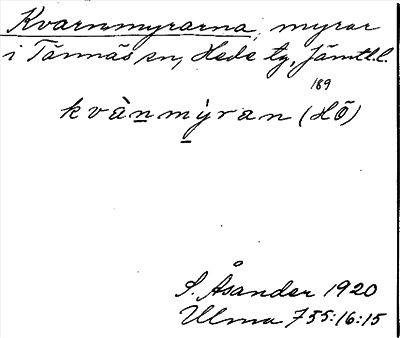 Kvarnmyrarna, myrar
i Tännäs sn, Hede tg, Jämtl.l.
189
kvànmýran (HÖ)
S. Åsander 1920
Ulma 755:16:15